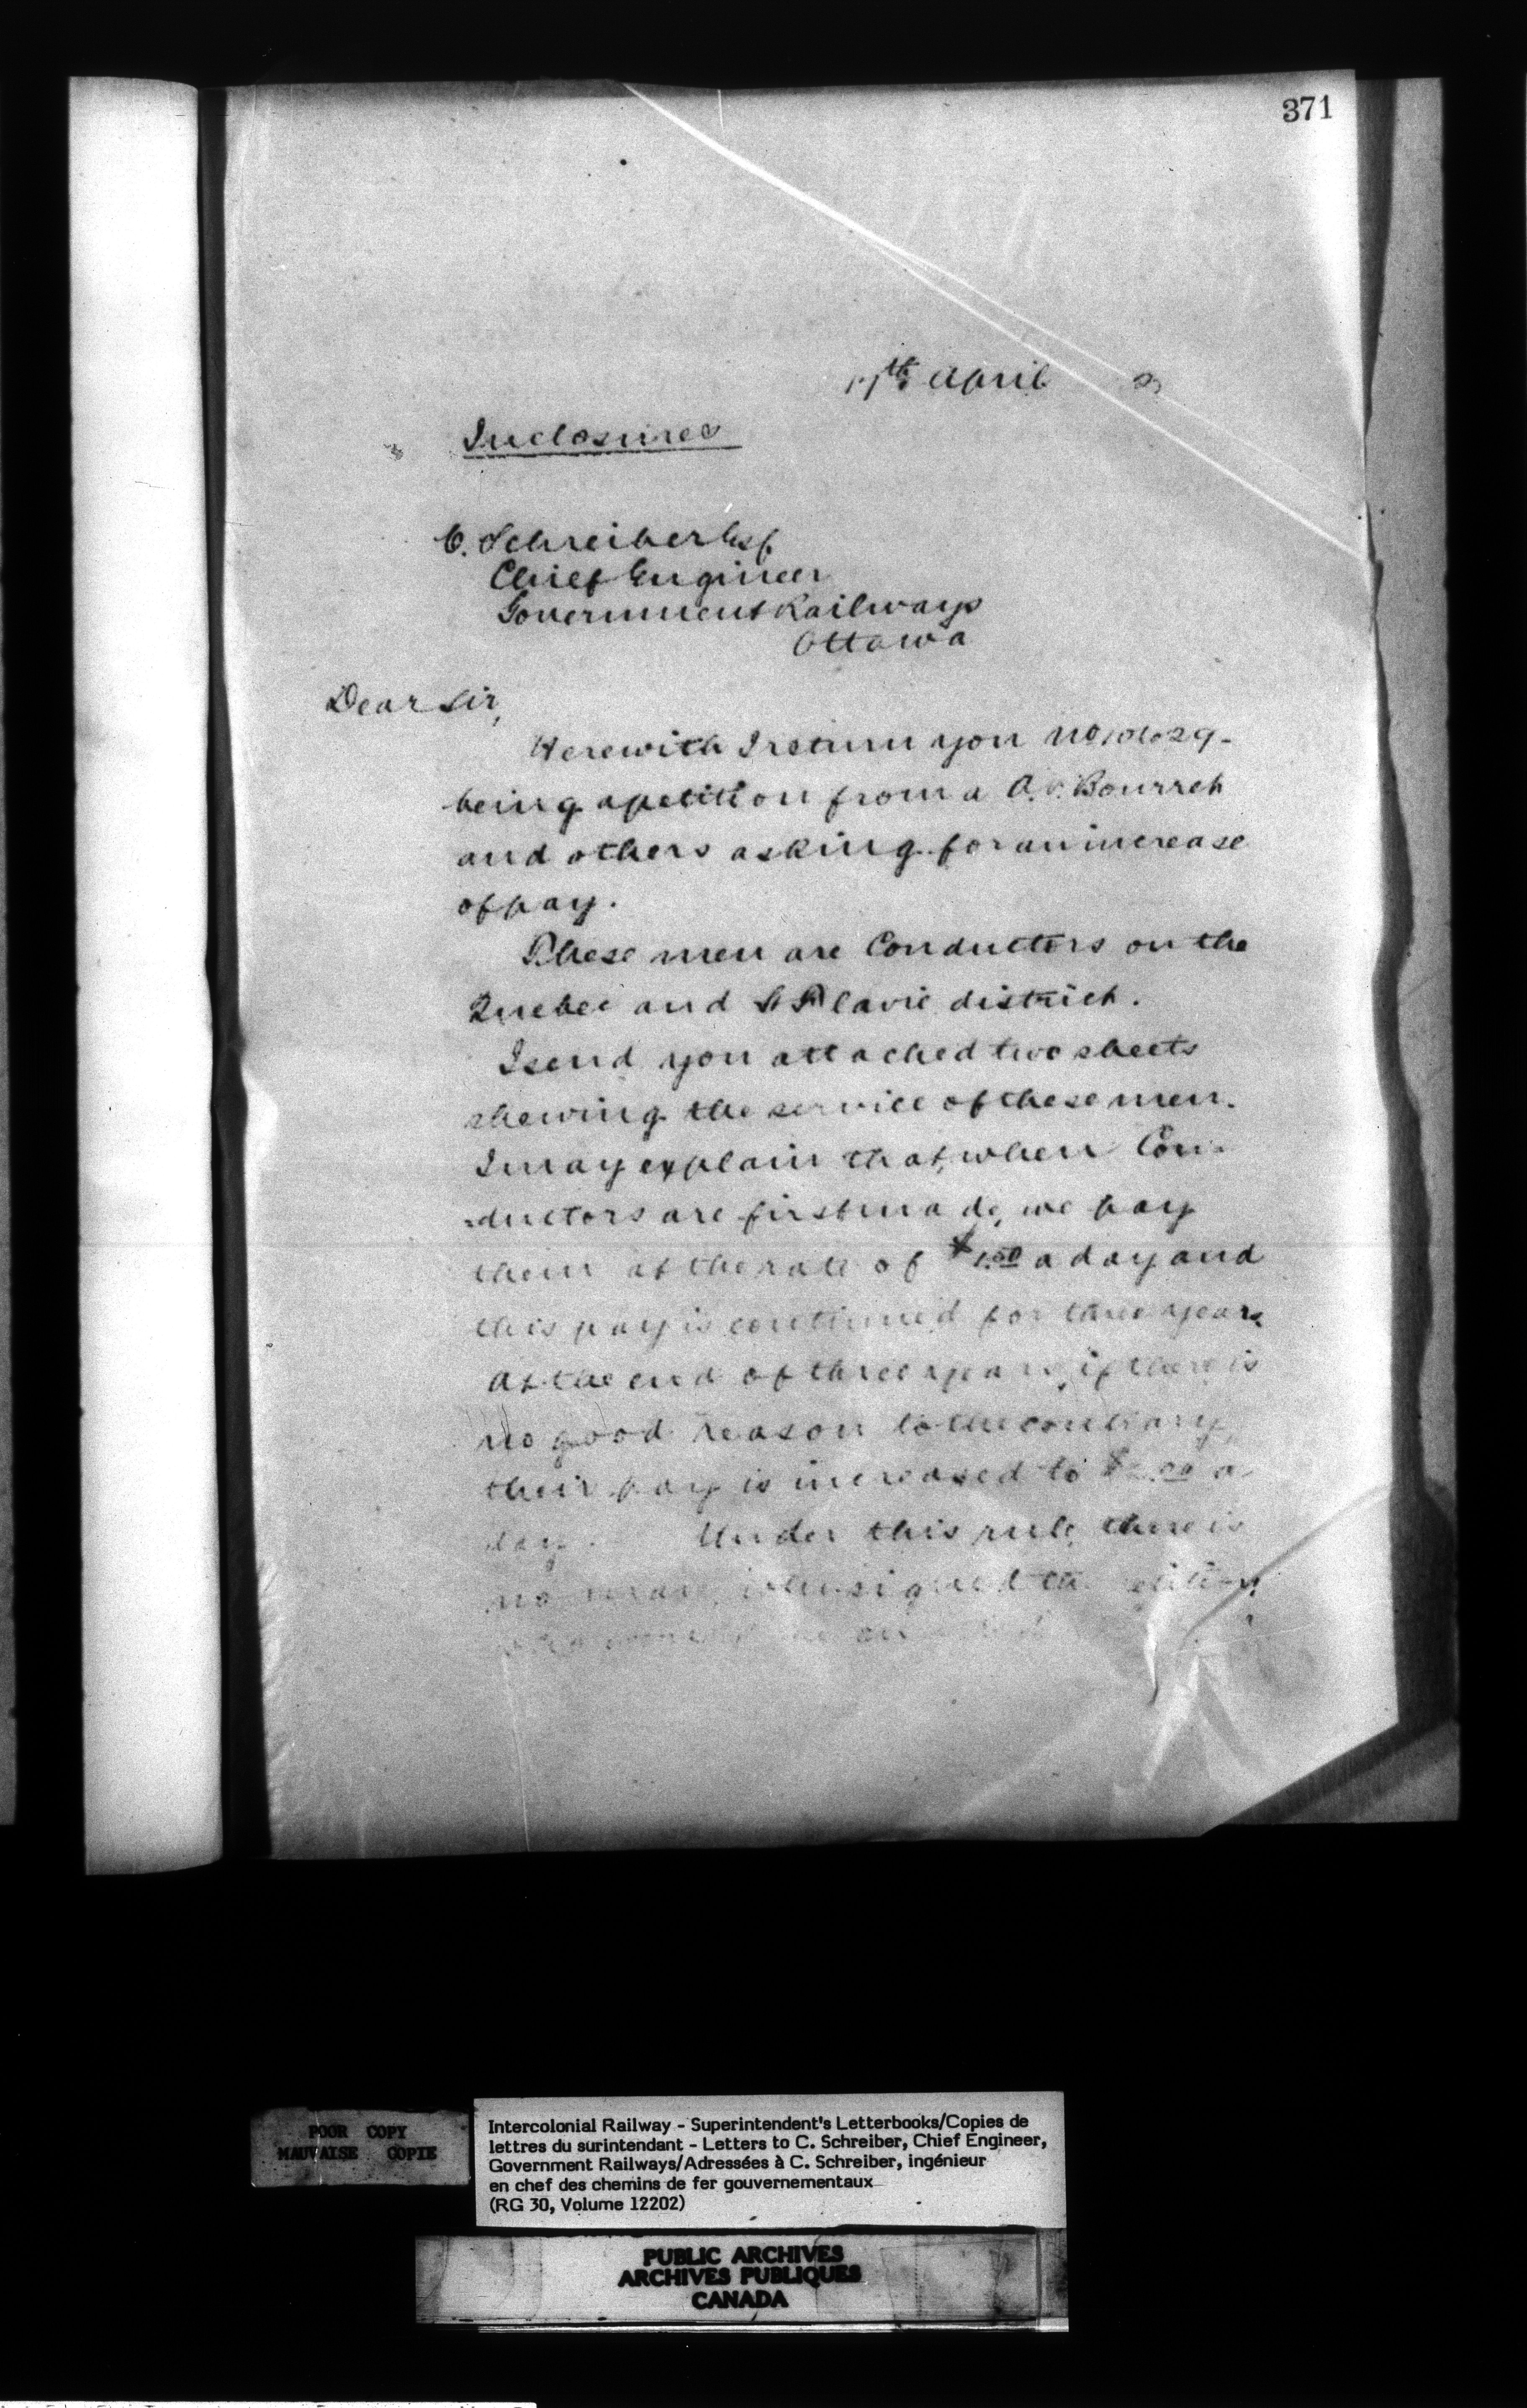 371
April
Inclosures
C. Schreiber Esq
Chief Engineer
Government Railways
Ottawa
Dear Sir,
Herewith I return you No
being a petition from a Bourret
and others asking for an increase
of pay.
These men are Conductors on the
Quebec and St Flavie district.
I send you attached two sheets
shewing the service of these men.
I may explain that, when Con-
=ductors are first made, we pay
them at the rate of $1.50 a day and
this pay is continued for three years
At the end of three years, if there is
no good reason to the contrary,
their pay is increased to $ a
day. Under this rule there is
no man who signed the petition
POOR COPY
MAUVAISE COPIE
Intercolonial Railway - Superintendent's Letterbooks/Copies de
lettres du surintendant - Letters to C. Schreiber, Chief Engineer,
Government Railways/Adressées à C. Schreiber, ingénieur
en chef des chemins de fer gouvernementaux
(RG 30, Volume 12202)
PUBLIC ARCHIVES
ARCHIVES PUBLIQUES
CANADA